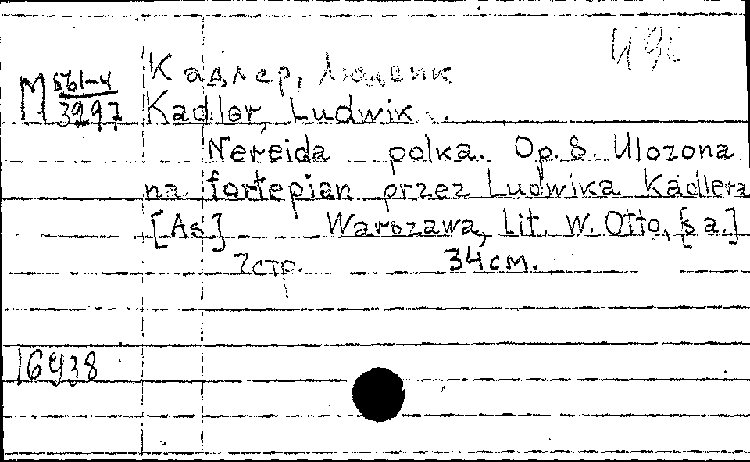 Кадлер, Людвик
М 561-4
3297
Kadler, Ludwik.
Nereida polka. Op. 8. Ulozona
na fortepian przez Ludwika Kadlera
[As.] Warszawa, Lit. W. Otto, [s a.]
7 стр. 34 см.
16438